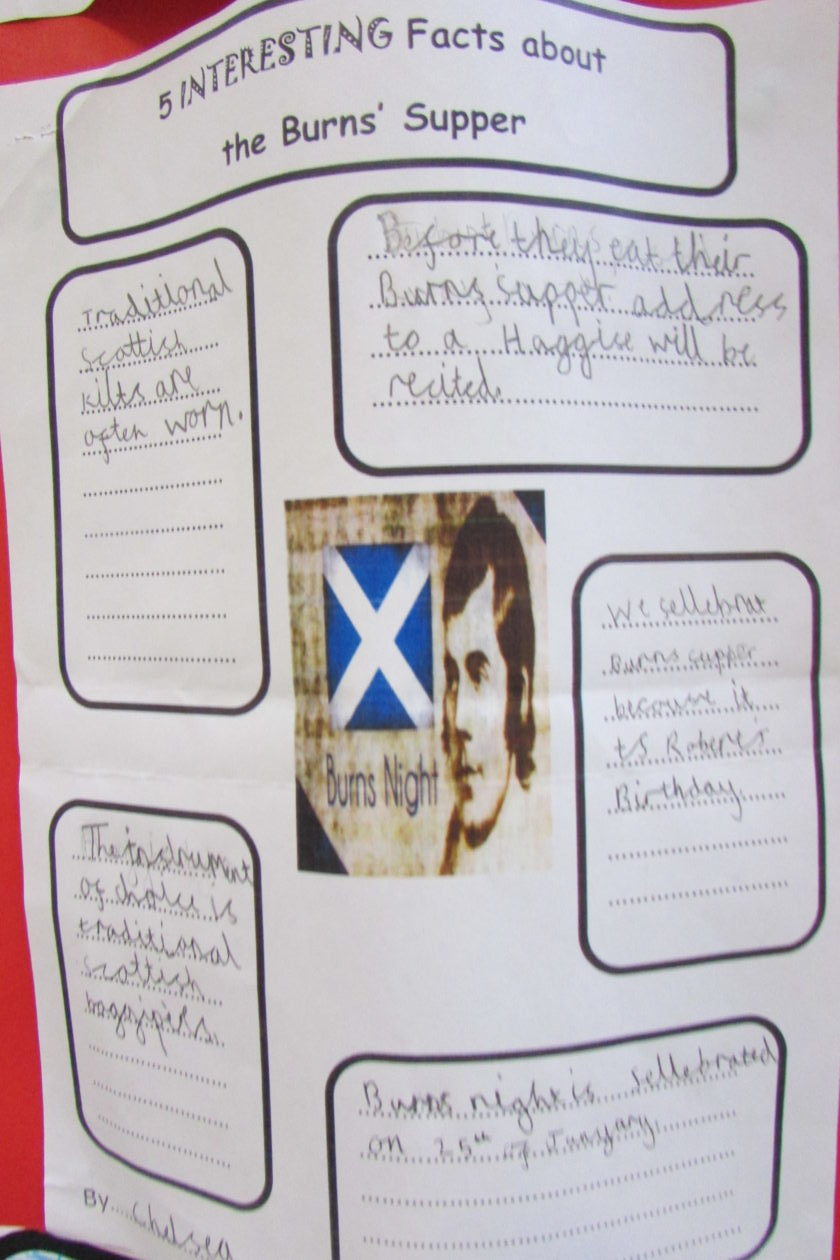 5 INTERESTING Facts about
the Burns' Supper
Traditional
scottish
kilts are
often worn.
Before they eat their
Burns supper address
to a Haggise will be
recited.
Burns Night
We sellebrat
Burns supper
because it
ts Robert's
Birthday.
The instrument
of choice is
traditional
scottish
bagpipes.
Burns night is sellebrated
on 25th of
By Chelsea